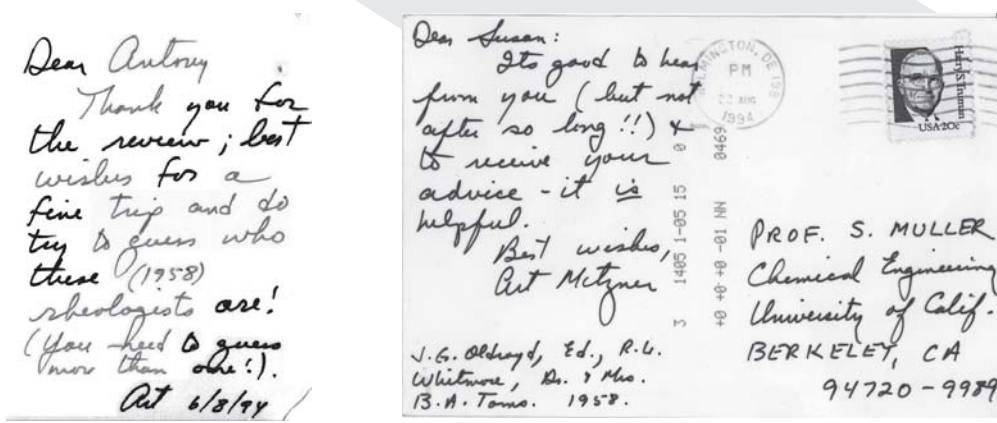 Dear Antony
Thank you for
the review; best
wishes for a
fine trip and do
try to guess who
these (1958)
rheologists are!
(You need to guess
more than one!).
Art 6/8/94
Dear Susan:
Its good to hear
from you (but not
after so long!!) &
to receive your
advice - it is
helpful.
Best wishes,
Art Metzner
J.G. Oldroyd, Ed., R.L.
Whitmore, Dr. & Mrs.
B.A. Toms. 1958.
WILMINGTON, DE 198
PM
22 AUG
1994
Harry S. Truman
USA 20c
3 1405 1-05 15 0
+0 +0 -0+ -01 NN 0469
PROF. S. MULLER
Chemical Engineering
University of Calif.
BERKELEY, CA
94720-9989